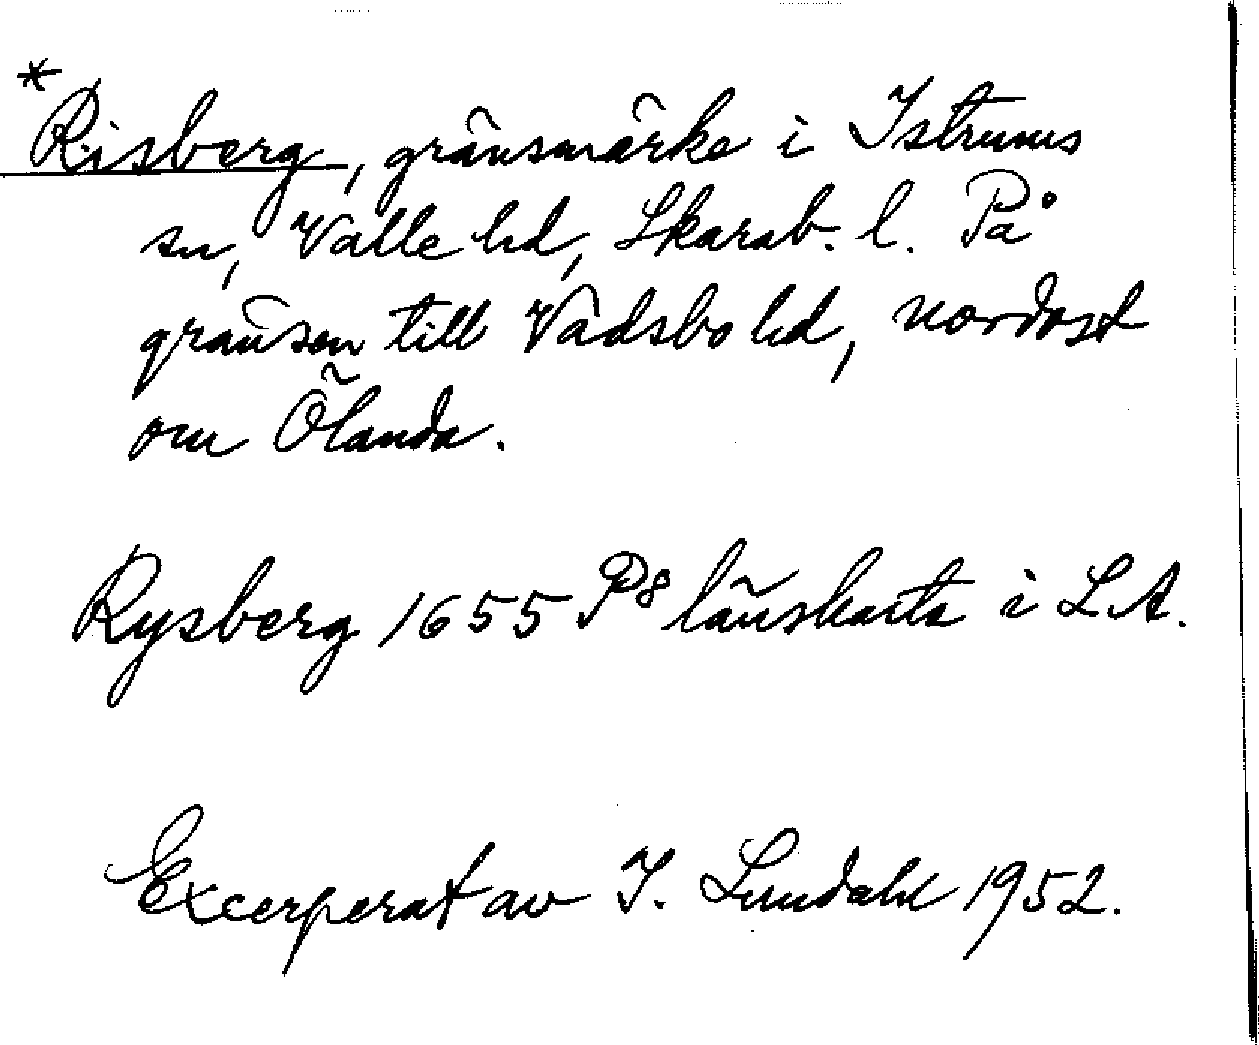 *Risberg, gränsmärke i Istrums
sn, Valle hd, Skarab. l. På
gränsen till Vadsbo hd, nordost
om Ölanda.
Rysberg 1655 P8 länskarta i LA.
Excerperat av I. Lundahl 1952.